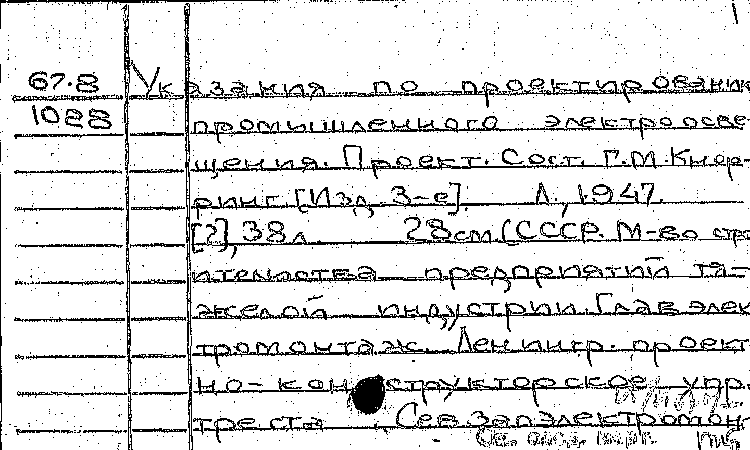 67.8 Указания по проектировании
1088 промышленного электроосве-
щения. Проект. Сост. Г.М. Кнор-
ринг. [Изд. 3-е]. Л., 1947.
[2], 38 л. 28 см. (СССР. М-во стро
ительства предприятий тя-
желой индустрии. Главэлек
тромонтаж. Ленингр. проект
но-конструкторское упр.
треста Севзапэлектромон